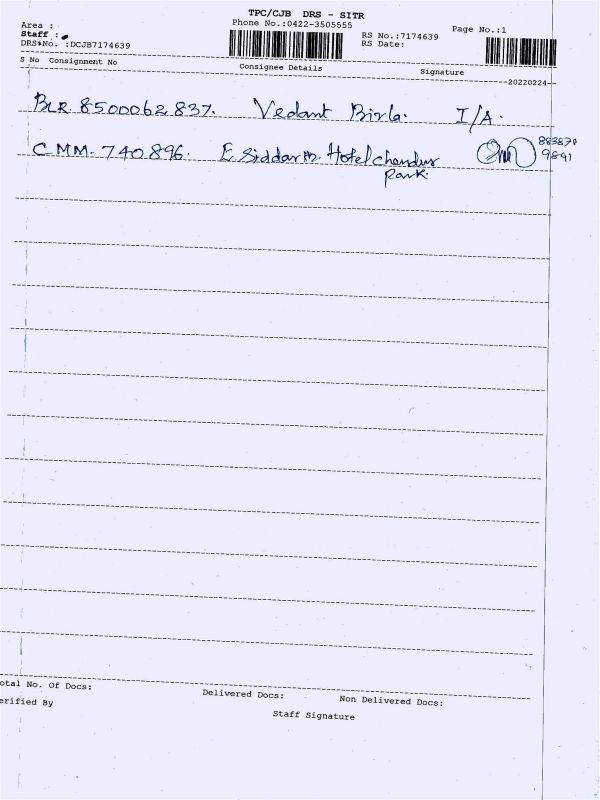 TPC/CJB DRS - SITR
Area :
Phone No.:0422-3505555
Page No.:1
Staff :
RS No.:7174639
DRS No. :DCJB7174639
RS Date:
S No Consignment No
Consignee Details
Signature
20220224
BLR. 8500062837. Vedant Birla. I/A.
CMM- 740896. E Siddarth. Hotel chendur
Park.
9891
otal No. Of Docs:
Delivered Docs:
Non Delivered Docs:
erified By
Staff Signature